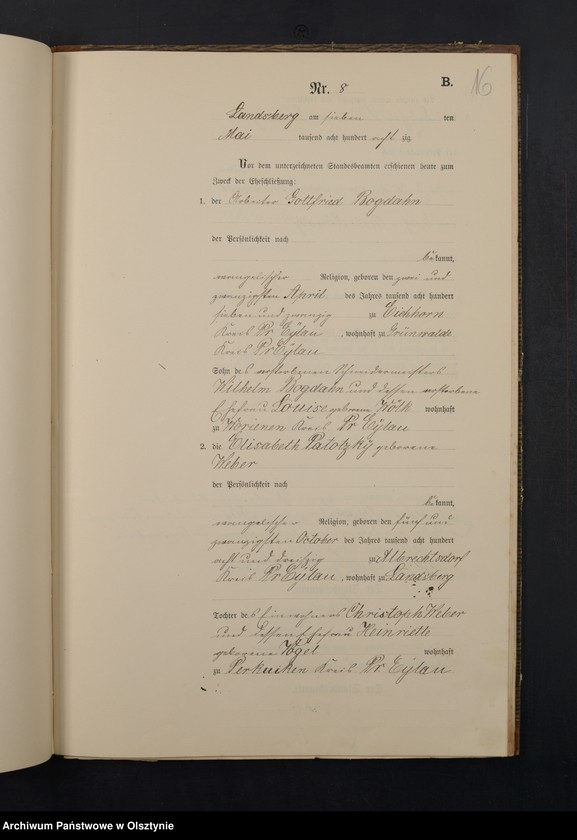 Nr. 8
B.
16
Landsberg am sieben ten
Mai tausend acht hundert acht zig.
Vor dem unterzeichneten Standesbeamten erschienen heute zum
Zweck der Eheschließung:
1. der Gottfried Bogdahn
der Persönlichkeit nach
bekannt,
evangelischer Religion, geboren den zwei und
zwanzigsten April des Jahres tausend acht hundert
sieben und zwanzig zu Eichhorn
Kreis Pr Eylau, wohnhaft zu Grünwalde
Kreis Pr Eylau
Sohn des verstorbenen
Wilhelm Bogdahn und dessen verstorbene
Ehefrau Louise geborene Wölk wohnhaft
zu Worienen Kreis Pr Eylau
2. die Elisabeth Patotzky geborene
Weber
der Persönlichkeit nach
bekannt,
evangelischer Religion, geboren den fünf und
zwanzigsten October des Jahres tausend acht hundert
acht und dreißig zu Albrechtsdorf
Kreis Pr Eylau, wohnhaft zu Landsberg
Tochter des Einwohners Christoph Weber
und dessen Ehefrau Heinriette
geborene Vogel wohnhaft
zu Perkuiken Kreis Pr Eylau
Archiwum Państwowe w Olsztynie